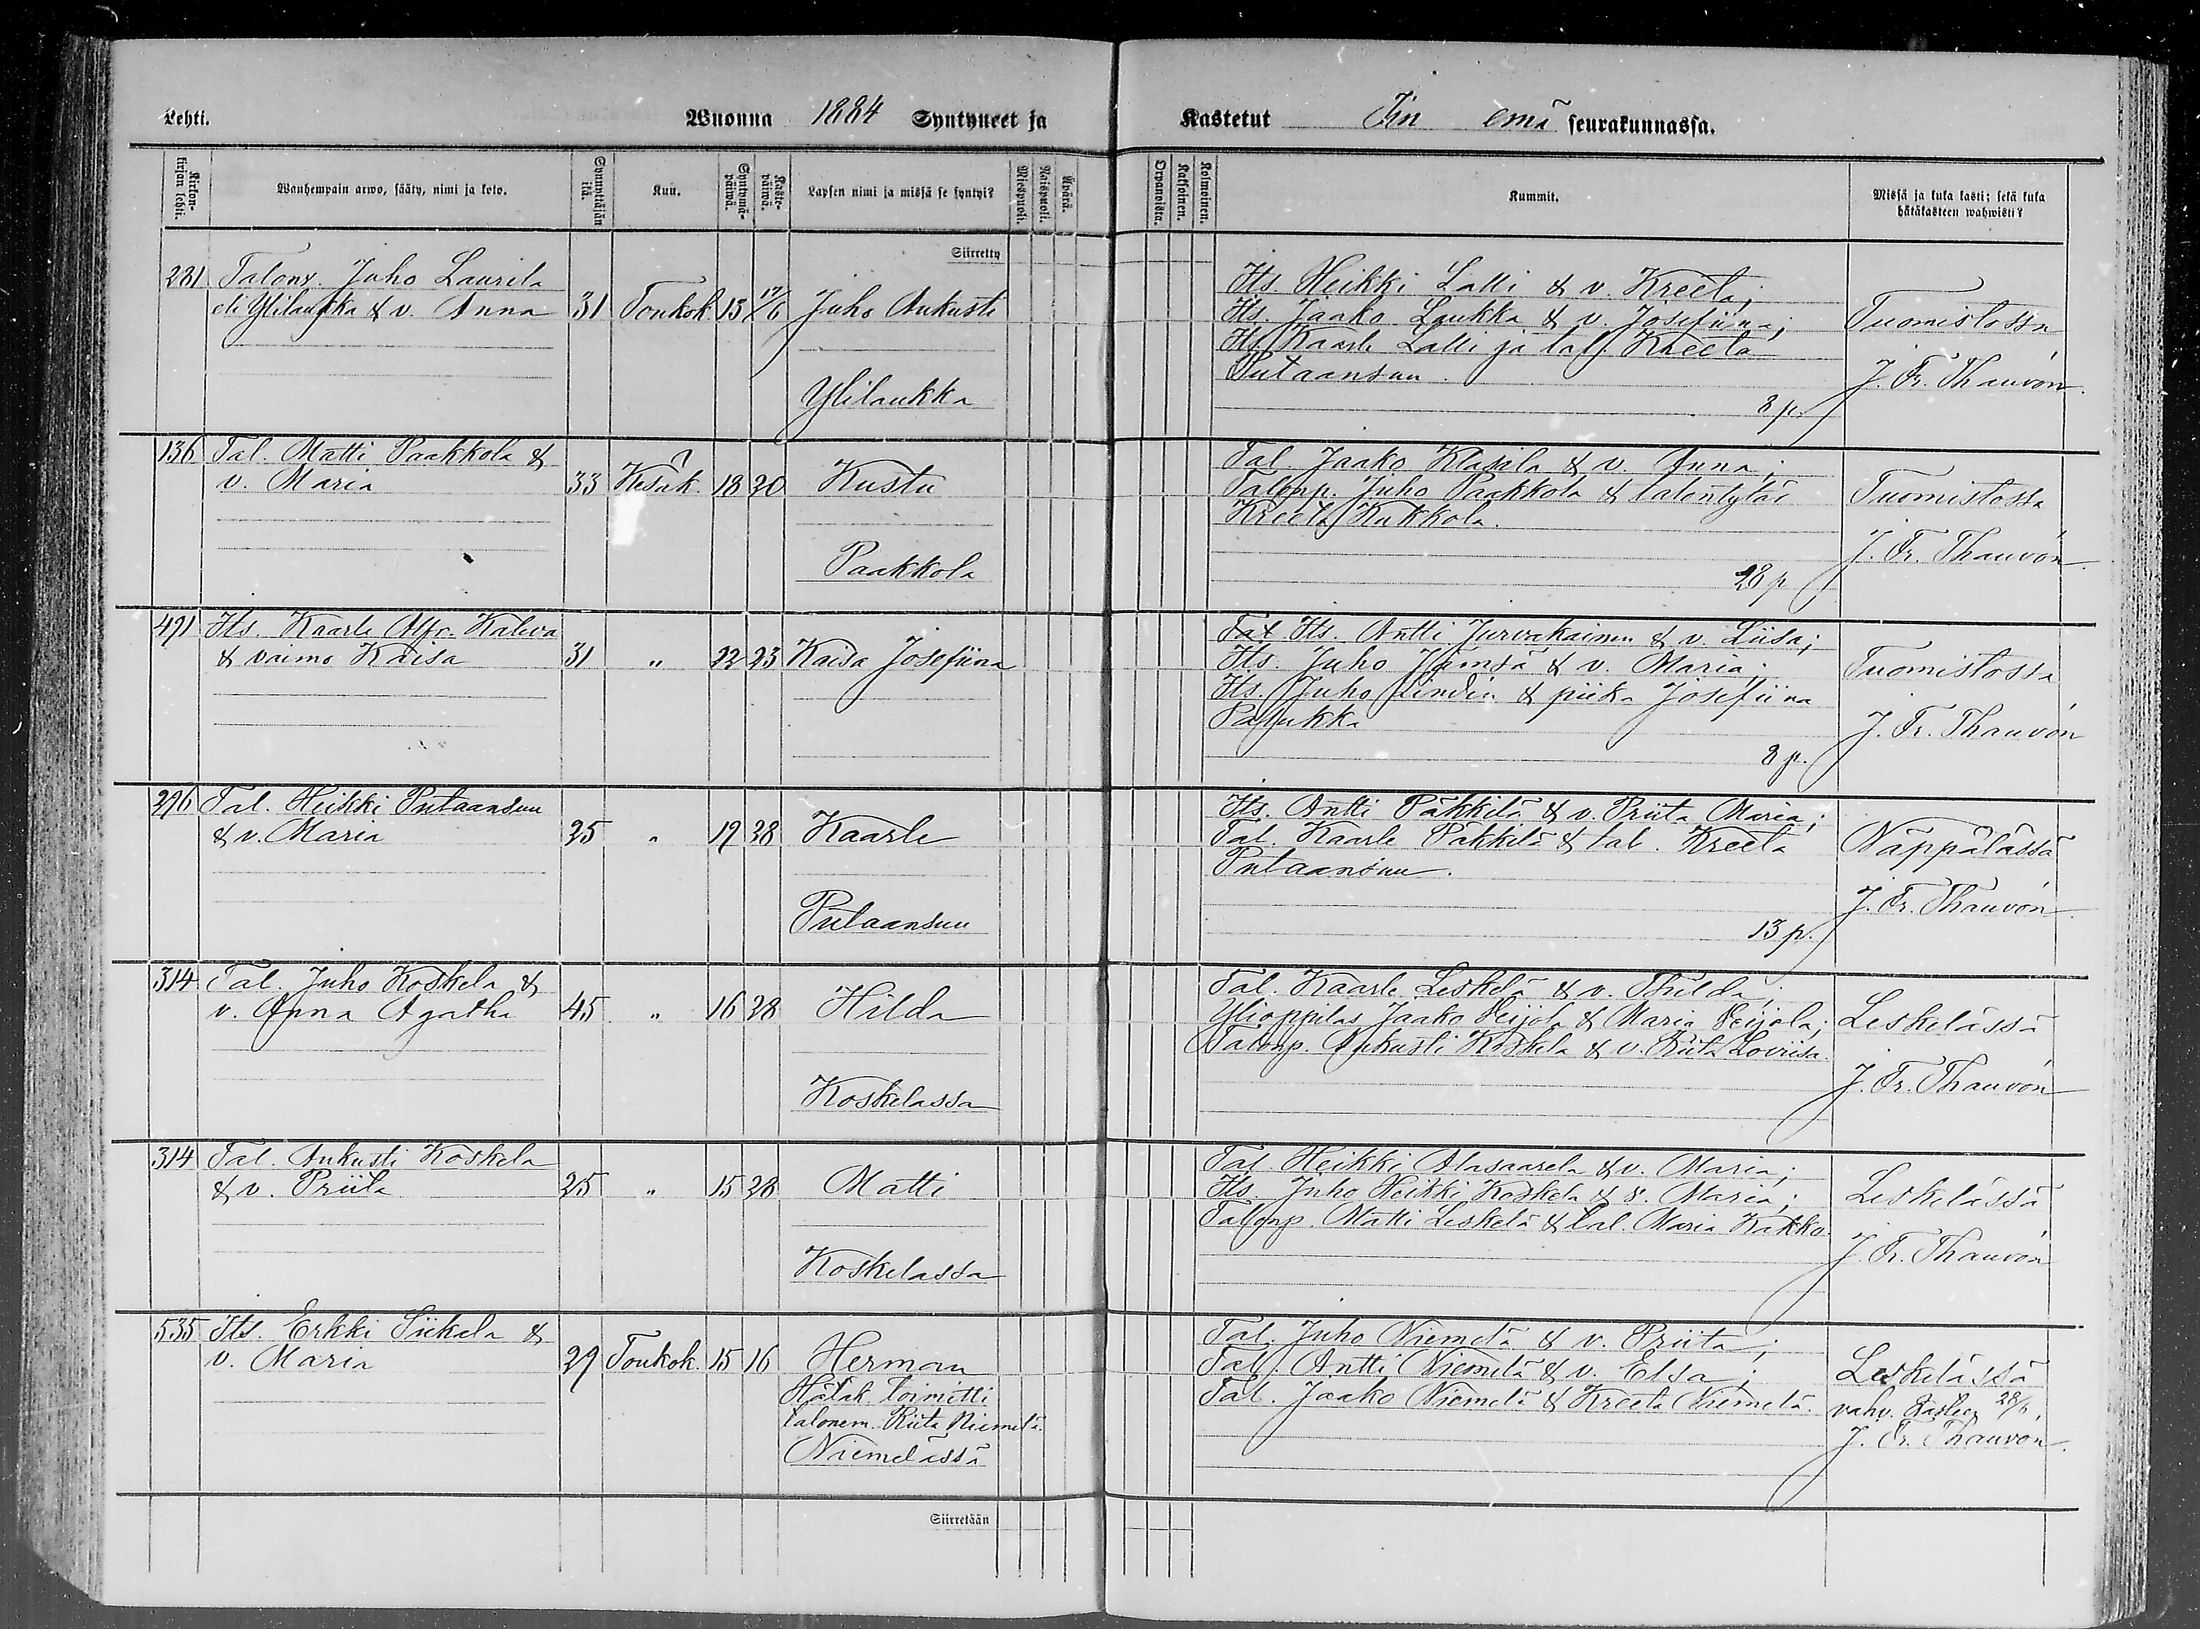 Lehti.
Wuonna 1884 Syntyneet ja
Kastetut Iin emä seurakunnassa.
Kirkon-
kirjan lehti.
Wanhempain arwo, sääty, nimi ja koto.
Synnyttäjän
ikä.
Kuu.
Syntymä-
päiwä.
Kaste-
päiwä.
Lapsen nimi ja missä se syntyi?
Miespuoli.
Naispuoli.
Äpärä.
Orpanoista.
Kaksoinen.
Kolmoinen.
Kummit.
Missä ja kuka kasti; sekä kuka
hätäkasteen wahwisti?
Siirretty
281 Talonp. Juho Laurila
eli Ylilaukka & v. Anna 31 Toukok. 15 17/6 Juho Aukusti
Ylilaukka
Its. Heikki Lalli & v. Kreeta;
Its. Jaako Laukka & v. Josefiina;
Its. Kaarle Lalli ja tal. Kreeta
Putaansuu.
8 p.
Tuomistossa
J. Fr. Thauvón.
136 Tal. Matti Paakkola &
v. Maria 33 Kesäk. 18 20 Kustu
Paakkola
Tal. Jaako Klasila & v. Anna;
Talonp. Juho Paakkola & talontytär
Kreeta Kakkola.
28 p
Tuomistossa
J. Fr. Thauvón.
491 Its. Kaarle Alfr. Kaleva
& vaimo Kaisa 31 " 22 23 Kaisa Josefiina
Tal. Its. Antti Jurvakainen & v. Liisa;
Its. Juho Jämsä & v. Maria;
Its. Juho Lindin & piika Josefiina
Pahukka
8 p.
Tuomistossa
J. Fr. Thauvón
296 Tal. Heikki Putaansuu
& v. Maria 25 " 19 28 Kaarle
Putaansuu
Its. Antti Päkkilä & v. Priita Maria;
Tal. Kaarle Päkkilä & tal. Kreeta
Putaansuu.
13 p.
Näppälässä
J. Fr. Thauvón.
314 Tal. Juho Koskela &
v. Anna Agatha 45 " 16 28 Hilda
Koskelassa
Tal. Kaarle Leskelä & v. Thilda;
Ylioppilas Jaako Veijola & Maria Veijola;
Talonp. Aukusti Koskela & v. Riita Loviisa.
Leskelässä
J. Fr. Thauvón
314 Tal. Aukusti Koskela
& v. Priita 25 " 15 28 Matti
Koskelassa
Tal. Heikki Alasaarela & v. Maria;
Its. Juho Heikki Koskela & v. Maria;
Talonp. Matti Leskelä & tal. Maria Kakko.
Leskelässä
J. Fr. Thauvón
535 Its. Erkki Siikela &
v. Maria 29 Toukok. 15 16 Herman
Hätäk. toimitti
talonem. Riita Niemelä.
Niemelässä
Tal. Juho Niemelä & v. Priita;
Tal. Antti Niemelä & v. Elsa;
Tal. Jaako Niemelä & Kreeta Niemelä.
Leskelässä
vahv. kasteen 28/6.
J. Fr. Thauvón.
Siirretään